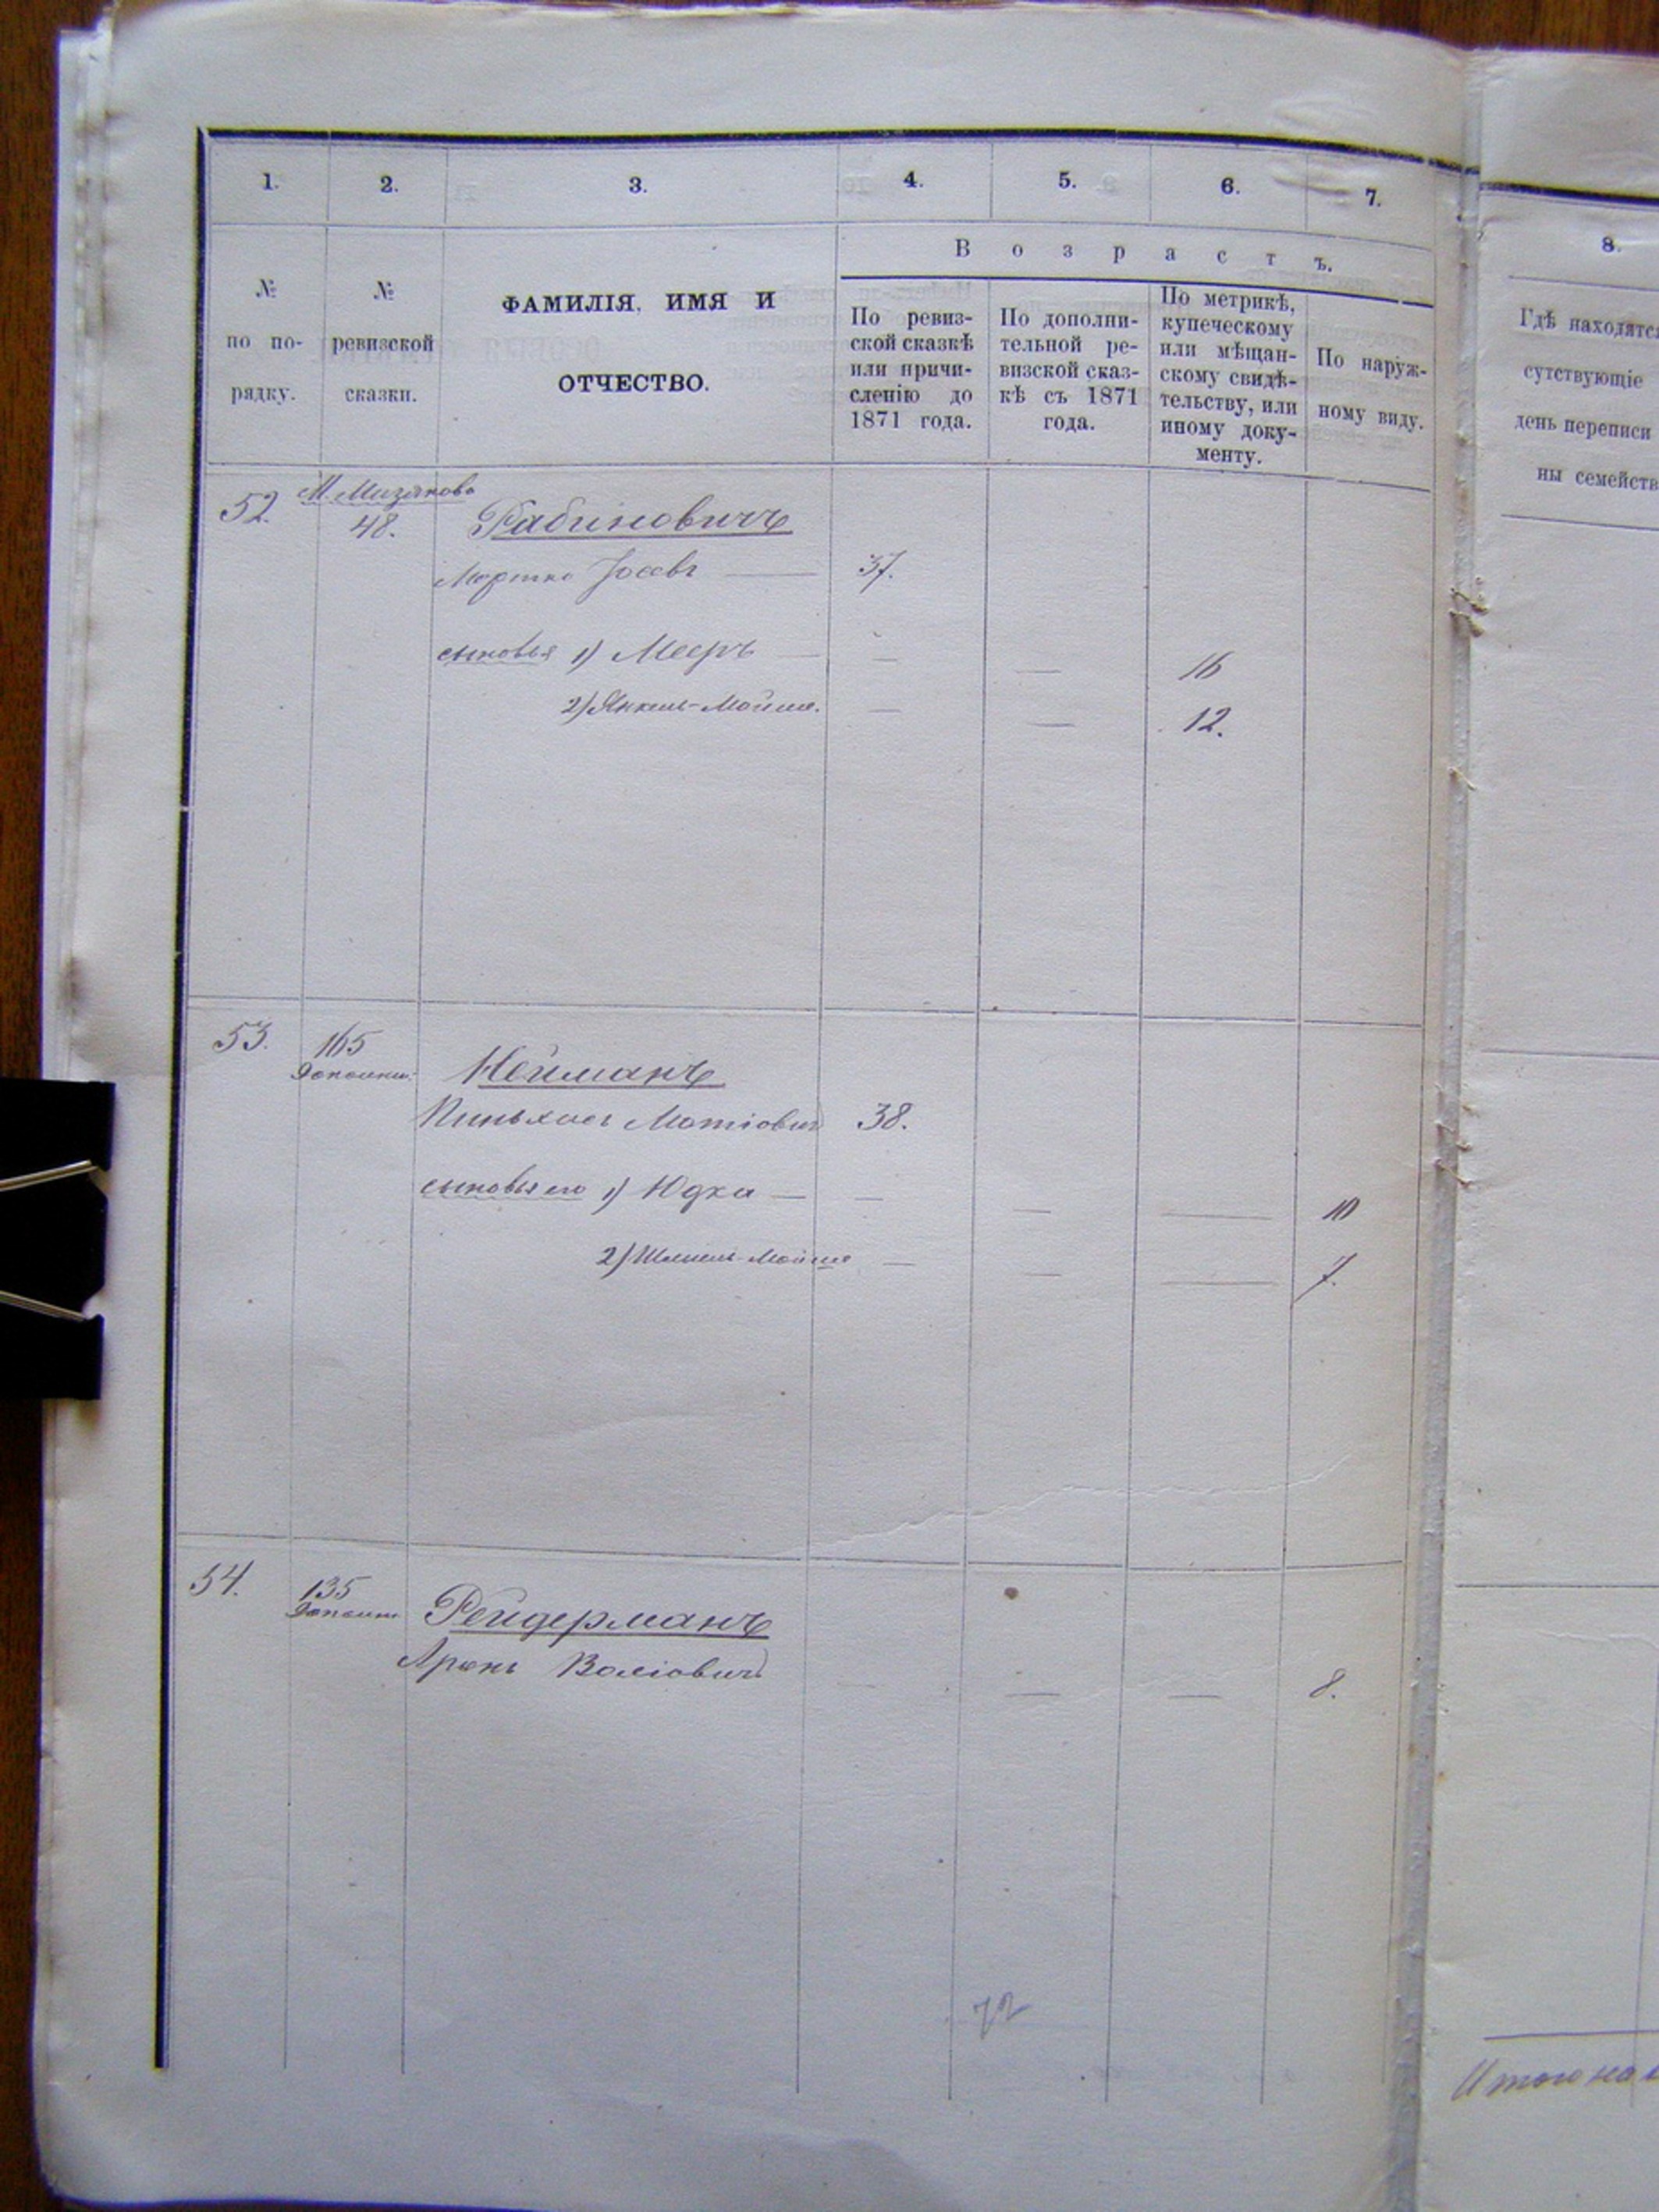 1. 2. 3. 4. 5. 6. 7.
№ по по-рядку.
№ ревизской сказки.
ФАМИЛІЯ, ИМЯ И
ОТЧЕСТВО.
Возрастъ.
По ревиз-
ской сказкѣ
или причи-
сленію до
1871 года.
По дополни-
тельной ре-
визской сказ-
кѣ съ 1871
года.
По метрикѣ,
купеческому
или мѣщан-
скому свидѣ-
тельству, или
иному доку-
менту.
По наруж-
ному виду.
52. М. Мизяково
48. Рабиновичъ
Мортко Іосевъ 37.
сыновья 1) Мееръ — — — 16
2) Янкель-Мойше. — — 12.
53. 165
Нейманъ
Пиньхасъ Мотіовичъ 38.
сыновья его 1) Юдка — — — — 10
2) Шмиль-Мойше — — — 7.
54. 135
Рейдерманъ
Аронъ Волiовичъ — — — 8.
72
8.
Гдѣ находятся
сутствующіе
день переписи
ны семейств
Итого на